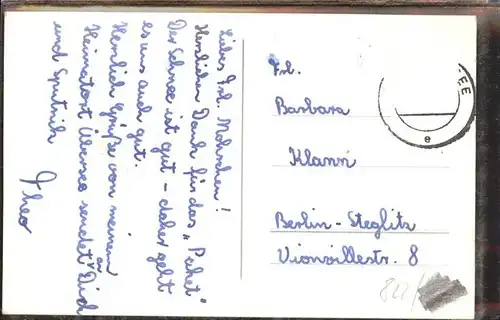 Liebes Frl. Mohrchen!
Herzlichen Dank für das "Paket"
Der Schnee ist gut - daher geht
es uns auch gut.
Herzlich Grüße von meinem
Heimatort Übersee sendet an Dich
und Sputnik
Theo
Frl.
Barbara
Klann
Berlin - Steglitz
Vionvillestr. 8
EE
e